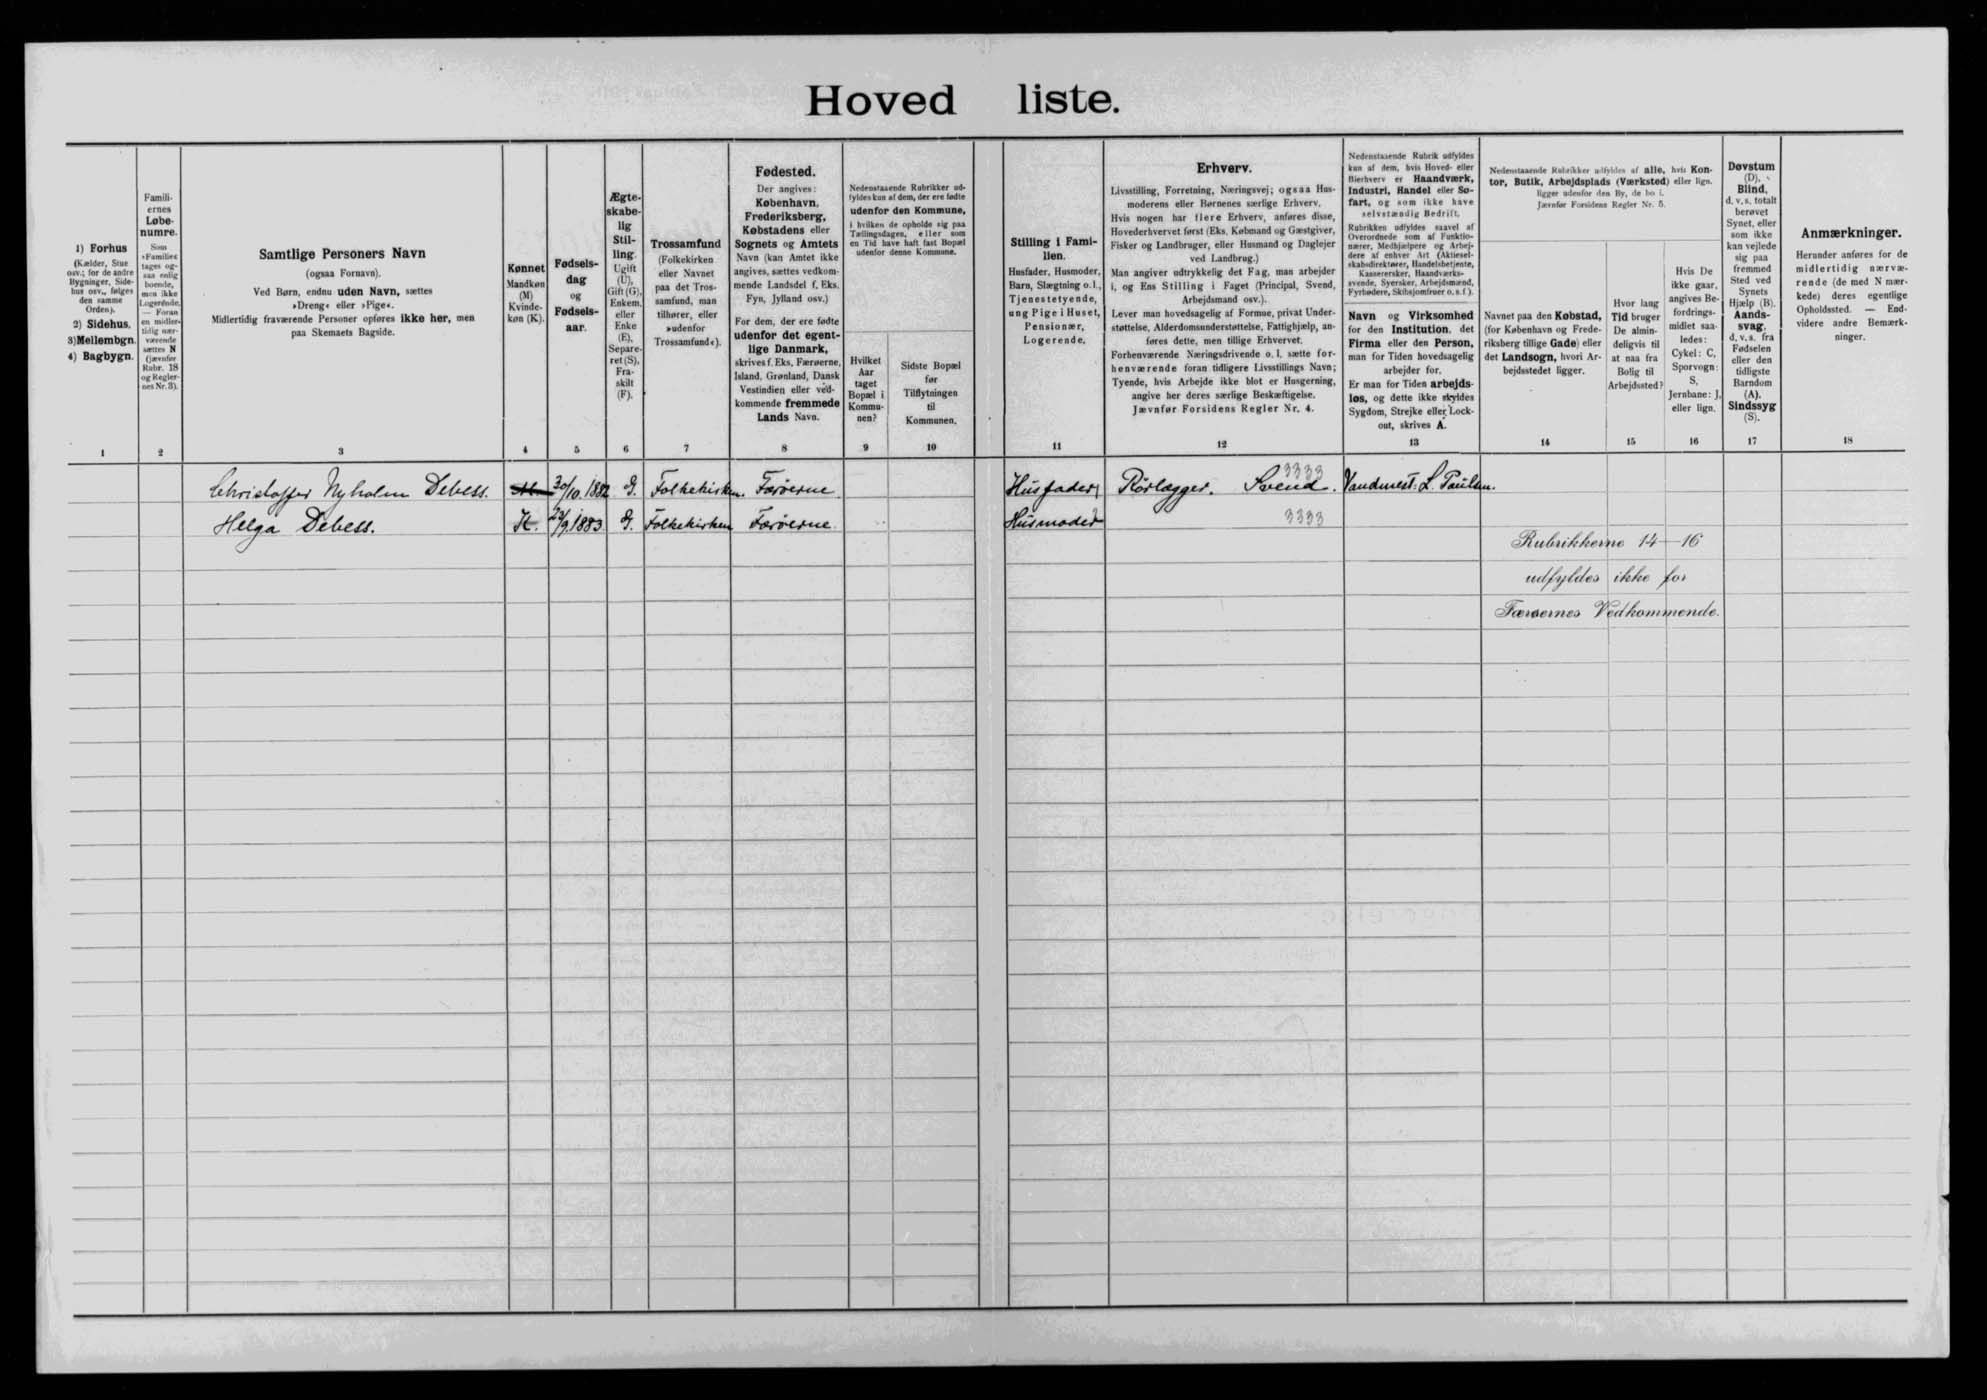 Hoved liste.
1) Forhus
(Kælder, Stue
osv.; for de andre
Bygninger, Side-
hus osv., følges
den samme
Orden).
2) Sidehus.
3) Mellembgn.
4) Bagbygn.
1
Famili-
ernes
Løbe-
numre.
Som
»Familie«
tages og-
saa enlig
boende,
men ikke
Logerende.
— Foran
en midler-
tidig nær-
værende
sættes N
(jævnfør
Rubr. 18
og Regler-
nes Nr. 3).
2
Samtlige Personers Navn
(ogsaa Fornavn).
Ved Børn, endnu uden Navn, sættes
»Dreng« eller »Pige«.
Midlertidig fraværende Personer opføres ikke her, men
paa Skemaets Bagside.
3
Kønnet
Mandkøn
(M)
Kvinde-
køn (K).
4
Fødsels-
dag
og
Fødsels-
aar.
5
Ægte-
skabe-
lig
Stil-
ling.
Ugift
(U),
Gift (G),
Enkem.
eller
Enke
(E),
Separe-
ret (S),
Fra-
skilt
(F).
6
Trossamfund
(Folkekirken
eller Navnet
paa det Tros-
samfund, man
tilhører, eller
»udenfor
Trossamfund«).
7
Fødested.
Der angives:
København,
Frederiksberg,
Købstadens eller
Sognets og Amtets
Navn (kan Amtet ikke
angives, sættes vedkom-
mende Landsdel f. Eks.
Fyn, Jylland osv.)
For dem, der ere fødte
udenfor det egent-
lige Danmark,
skrives f. Eks. Færøerne,
Island, Grønland, Dansk
Vestindien eller ved-
kommende fremmede
Lands Navn.
8
Nedenstaaende Rubrikker ud-
fyldes kun af dem, der ere fødte
udenfor den Kommune,
i hvilken de opholde sig paa
Tællingsdagen, eller som
en Tid have haft fast Bopæl
udenfor denne Kommune.
Hvilket
Aar
taget
Bopæl i
Kommu-
nen?
9
Sidste Bopæl
før
Tilflytningen
til
Kommunen.
10
Stilling i Fami-
lien.
Husfader, Husmoder,
Barn, Slægtning o. l.,
Tjenestetyende,
ung Pige i Huset,
Pensionær,
Logerende.
11
Erhverv.
Livsstilling, Forretning, Næringsvej; ogsaa Hus-
moderens eller Børnenes særlige Erhverv.
Hvis nogen har flere Erhverv, anføres disse,
Hovederhvervet først (Eks. Købmand og Gæstgiver,
Fisker og Landbruger, eller Husmand og Daglejer
ved Landbrug.)
Man angiver udtrykkelig det Fag, man arbejder
i, og Ens Stilling i Faget (Principal, Svend,
Arbejdsmand osv.).
Lever man hovedsagelig af Formue, privat Under-
støttelse, Alderdomsunderstøttelse, Fattighjælp, an-
føres dette, men tillige Erhvervet.
Forhenværende Næringsdrivende o. l. sætte for-
henværende foran tidligere Livsstillings Navn;
Tyende, hvis Arbejde ikke blot er Husgerning,
angive her deres særlige Beskæftigelse.
Jævnfør Forsidens Regler Nr. 4.
12
Nedenstaaende Rubrik udfyldes
kun af dem, hvis Hoved- eller
Bierhverv er Haandværk,
Industri, Handel eller Sø-
fart, og som ikke have
selvstændig Bedrift.
Rubrikken udfyldes saavel af
Overordnede som af Funktio-
nærer, Medhjælpere og Arbej-
dere af enhver Art (Aktiesel-
skabsdirektører, Handelsbetjente,
Kasserersker, Haandværks-
svende, Syersker, Arbejdsmænd,
Fyrbødere, Skibsjomfruer o. s. f.).
Navn og Virksomhed
for den Institution, det
Firma eller den Person,
man for Tiden hovedsagelig
arbejder for.
Er man for Tiden arbejds-
løs, og dette ikke skyldes
Sygdom, Strejke eller Lock-
out, skrives A.
13
Nedenstaaende Rubrikker udfyldes af alle, hvis Kon-
tor, Butik, Arbejdsplads (Værksted) eller lign.
ligger udenfor den By, de bo i.
Jævnfør Forsidens Regler Nr. 5.
Navnet paa den Købstad,
(for København og Frede-
riksberg tillige Gade) eller
det Landsogn, hvori Ar-
bejdsstedet ligger.
14
Hvor lang
Tid bruger
De almin-
deligvis til
at naa fra
Bolig til
Arbejdssted?
15
Hvis De
ikke gaar,
angives Be-
fordrings-
midlet saa-
ledes:
Cykel: C,
Sporvogn:
S,
Jernbane: J,
eller lign.
16
Døvstum
(D).
Blind,
d. v. s. totalt
berøvet
Synet, eller
som ikke
kan vejlede
sig paa
fremmed
Sted ved
Synets
Hjælp (B).
Aands-
svag,
d. v. s. fra
Fødselen
eller den
tidligste
Barndom
(A).
Sindssyg
(S).
17
Anmærkninger.
Herunder anføres for de
midlertidig nærvæ-
rende (de med N mær-
kede) deres egentlige
Opholdssted. — End-
videre andre Bemærk-
ninger.
18
Christoffer Nyholm Debess. M. 30/10. 1882 G. Folkekirken. Færöerne. Husfader Rörlægger. Svend. 3333 Vandmest: L. Paulsen.
Helga Debess. K. 23/9. 1883 G. Folkekirken Færöerne. Husmoder 3333
Rubrikkerne 14—16
udfyldes ikke for
Færøernes Vedkommende.